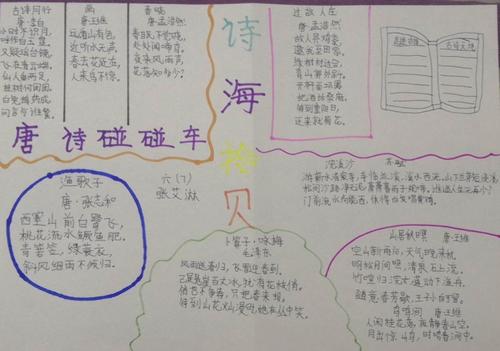 古诗同行
唐·李白
小时不识月
呼作白玉盘
又疑瑶台镜
飞在青云端
仙人垂两足
桂树何团团
白兔捣药成
问言与谁餐
画
唐·王维
远看山有色
近听水无声
春去花还在
人来鸟不惊
春晓
唐·孟浩然
春眠不觉晓
处处闻啼鸟
夜来风雨声
花落知多少
诗海拾贝
过故人庄
唐·孟浩然
故人具鸡黍
邀我至田家
绿树村边合
青山郭外斜
开轩面场圃
把酒话桑麻
待到重阳日
还来就菊花
唐诗碰碰车
渔歌子
唐·张志和
西塞山前白鹭飞，
桃花流水鳜鱼肥。
青箬笠，绿蓑衣，
斜风细雨不须归。
六(7)
张艾淋
浣溪沙
苏轼
卜算子·咏梅
毛泽东
风雨送春归，飞雪迎春到
已是悬崖百丈冰，犹有花枝俏。
俏也不争春，只把春来报。
待到山花烂漫时，她在丛中笑。
山居秋暝 唐·王维
空山新雨后，天气晚来秋
明月松间照，清泉石上流
竹喧归浣女，莲动下渔舟
随意春芳歇，王孙自可留。
鸟鸣涧 唐·王维
人闲桂花落，夜静春山空。
月出惊山鸟，时鸣春涧中。